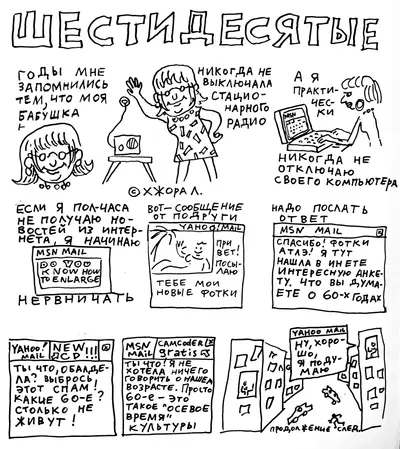 ШЕСТИДЕСЯТЫЕ
ГОДЫ МНЕ
ЗАПОМНИЛИСЬ
ТЕМ, ЧТО МОЯ
БАБУШКА
НИКОГДА НЕ
ВЫКЛЮЧАЛА
СТАЦИО-
НАРНОГО
РАДИО
А Я
ПРАКТИ-
ЧЕС-
КИ
НИКОГДА НЕ
ОТКЛЮЧАЮ
СВОЕГО КОМПЬЮТЕРА
© ХЖОРА Л.
ЕСЛИ Я ПОЛ-ЧАСА
НЕ ПОЛУЧАЮ НО-
ВОСТЕЙ ИЗ ИНТЕР-
НЕТА, Я НАЧИНАЮ
MSN MAIL
DO YOU
KNOW HOW
TO ENLARGE
НЕРВНИЧАТЬ
ВОТ—СООБЩЕНИЕ
ОТ ПОДРУГИ
YAHOO! MAIL
ПРИ
ВЕТ!
ПОСЫ-
ЛАЮ
ТЕБЕ МОИ
НОВЫЕ ФОТКИ
НАДО ПОСЛАТЬ
ОТВЕТ
MSN MAIL
СПАСИБО! ФОТКИ
АТЛЭ! Я ТУТ
НАШЛА В ИНЕТЕ
ИНТЕРЕСНУЮ АНКЕ-
ТУ. ЧТО ВЫ ДУМА-
ЕТЕ О 60-Х ГОДАХ
YAHOO! MAIL NEW CD!!!
ТЫ ЧТО, ОБАЛДЕ-
ЛА? ВЫБРОСЬ
ЭТОТ СПАМ!
КАКИЕ 60-Е?
СТОЛЬКО НЕ
ЖИВУТ!
MSN MAIL CAMCODER gratis
ТЫ ЧТО! Я НЕ
ХОТЕЛА НИЧЕГО
ГОВОРИТЬ О НАШЕМ
ВОЗРАСТЕ. ПРОСТО
60-Е – ЭТО
ТАКОЕ "ОСЕВОЕ
ВРЕМЯ"
КУЛЬТУРЫ
YAHOO MAIL
НУ, ХОРО-
ШО,
Я ПОДУ-
МАЮ
ПРОДОЛЖЕНИЕ СЛЕД.